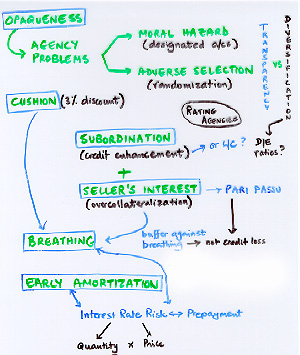 OPAQUENESS
AGENCY
PROBLEMS
MORAL HAZARD
(designated a/cs)
ADVERSE SELECTION
(randomization)
TRANSPARENCY
VS
DIVERSIFICATION
CUSHION (3% discount)
RATING
AGENCIES
D/E
ratios?
SUBORDINATION
(credit enhancement)
or L/C ?
+
SELLER'S INTEREST
PARI PASSU
(overcollateralization)
BREATHING
buffer against
breathing
not credit loss
EARLY AMORTIZATION
Interest Rate Risk
Prepayment
Quantity x Price